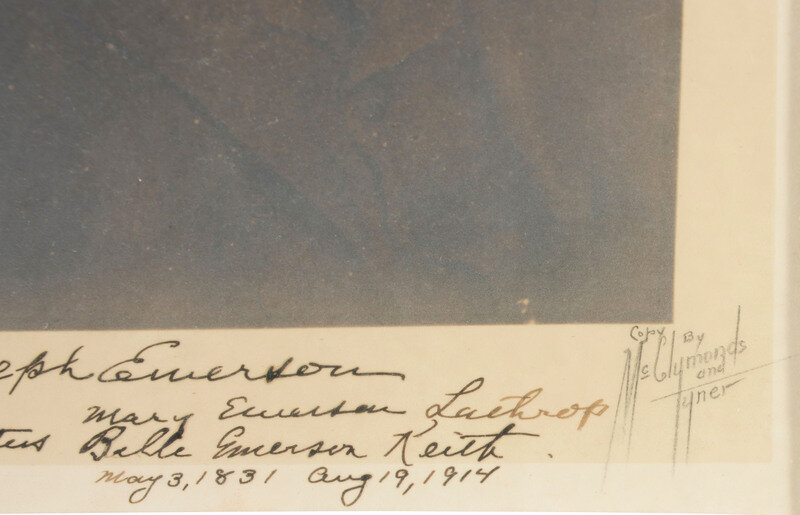 eph Emerson
Mary Emerson Lathrop
tus Belle Emerson Keith.
May 3, 1831 Aug 19, 1914
Copy By
McClymonds
and
Tyner